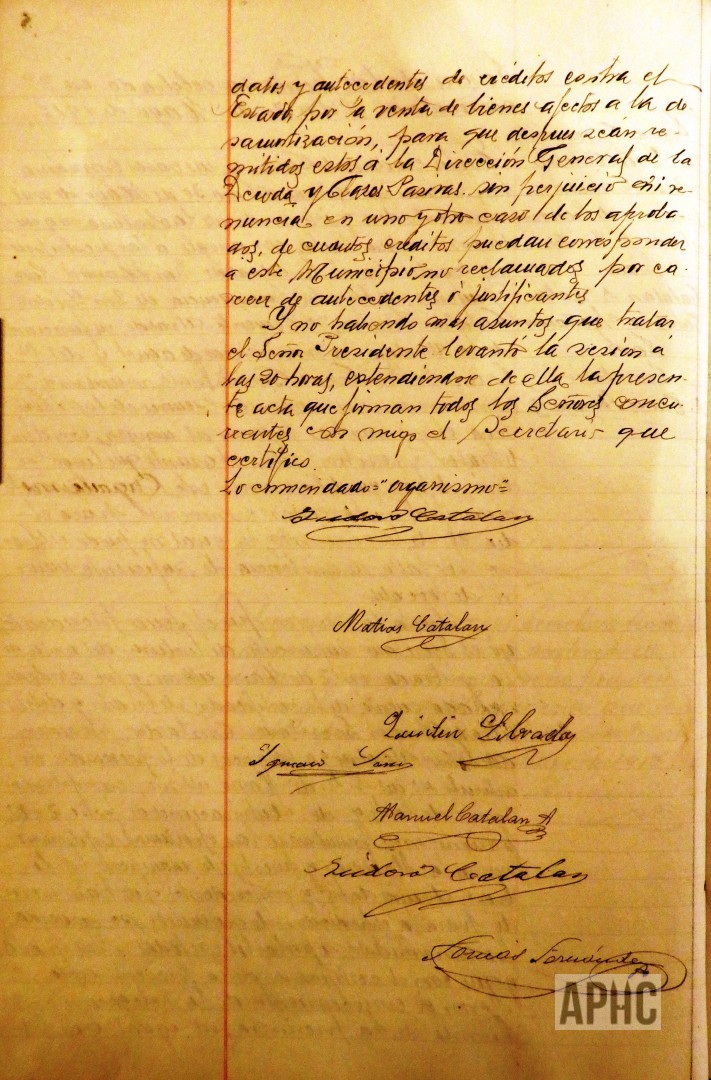 datos y antecedentes de créditos contra el
Estado por la venta de bienes afectos a la de
samortización, para que despues seán re-
mitidos estos á la Dirección General de la
Deuda y Clases Pasivas. sin perjuicio ni re-
nuncia en uno y otro caso de los aproba-
dos, de cuantos créditos puedan corresponder
a este Municipio, no reclamados por ca-
recer de antecedentes ó justificantes
Y no habiendo mas asuntos que tratar
el Señor Presidente levantó la sesión á
las 20 horas, extendiendose de ella la presen-
te acta que firman todos los Señores concu-
rrentes con migo el Secretario que
certifico.
Lo enmendado="organismo"=
Isidoro Catalan
Matias Catalan
Quintin Librado
Ignacio
Manuel Catalan A
Isidoro Catalan
Tomás Fernández
APHC